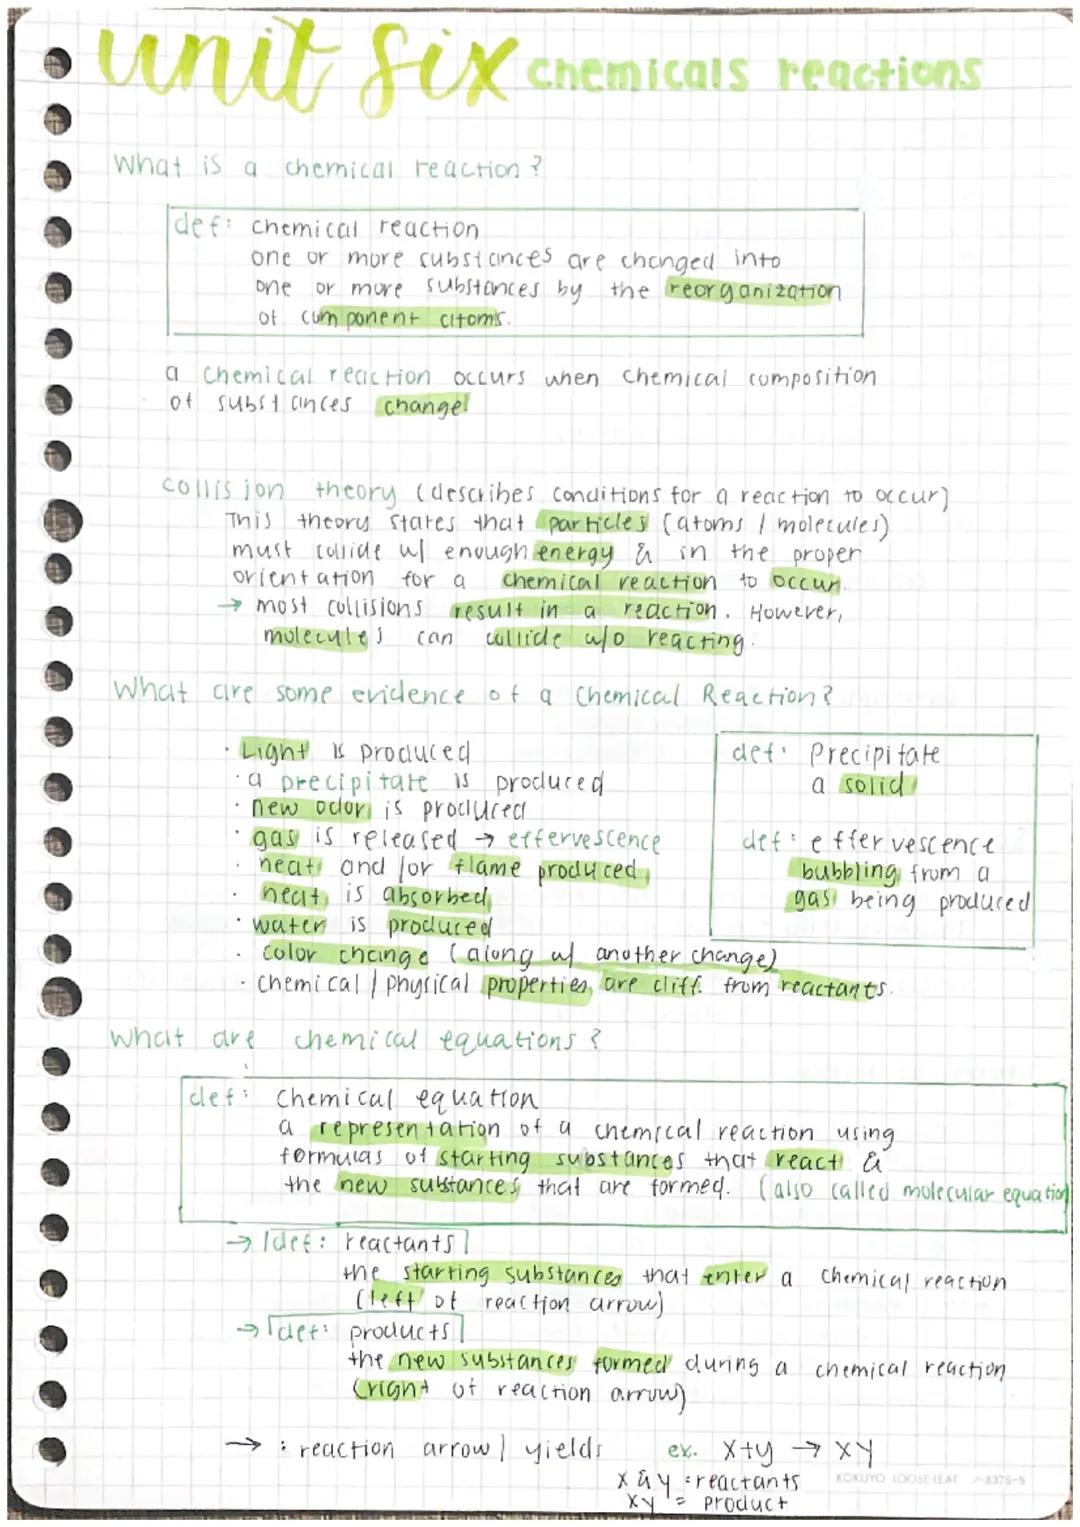 unit six chemicals reactions
What is a chemical reaction?
def: chemical reaction
one or more substances are changed into
one or more substances by the reorganization
of component atoms.
a chemical reaction occurs when chemical composition
of substances change!
collision theory (describes conditions for a reaction to occur)
This theory states that particles (atoms / molecules)
must collide w/ enough energy & in the proper
orientation for a chemical reaction to occur.
→ most collisions result in a reaction. However,
molecules can collide w/o reacting.
What are some evidence of a Chemical Reaction?
· Light is produced
· a precipitate is produced
· new odor is produced
· gas is released → effervescence
· heat and/or flame produced
· heat is absorbed
· water is produced
· color change (along w/ another change)
· chemical / physical properties are diff. from reactants.
def: Precipitate
a solid
def: effervescence
bubbling from a
gas being produced
What are chemical equations?
def: chemical equation
a representation of a chemical reaction using
formulas of starting substances that react &
the new substances that are formed. (also called molecular equation)
→ def: reactants
the starting substances that enter a chemical reaction
(left of reaction arrow)
→ def: products
the new substances formed during a chemical reaction
(right of reaction arrow)
→ : reaction arrow / yields
ex. x+y → xy
x & y = reactants
xy = product
KOKUYO LOOSE-LEAF ノ-837S-5